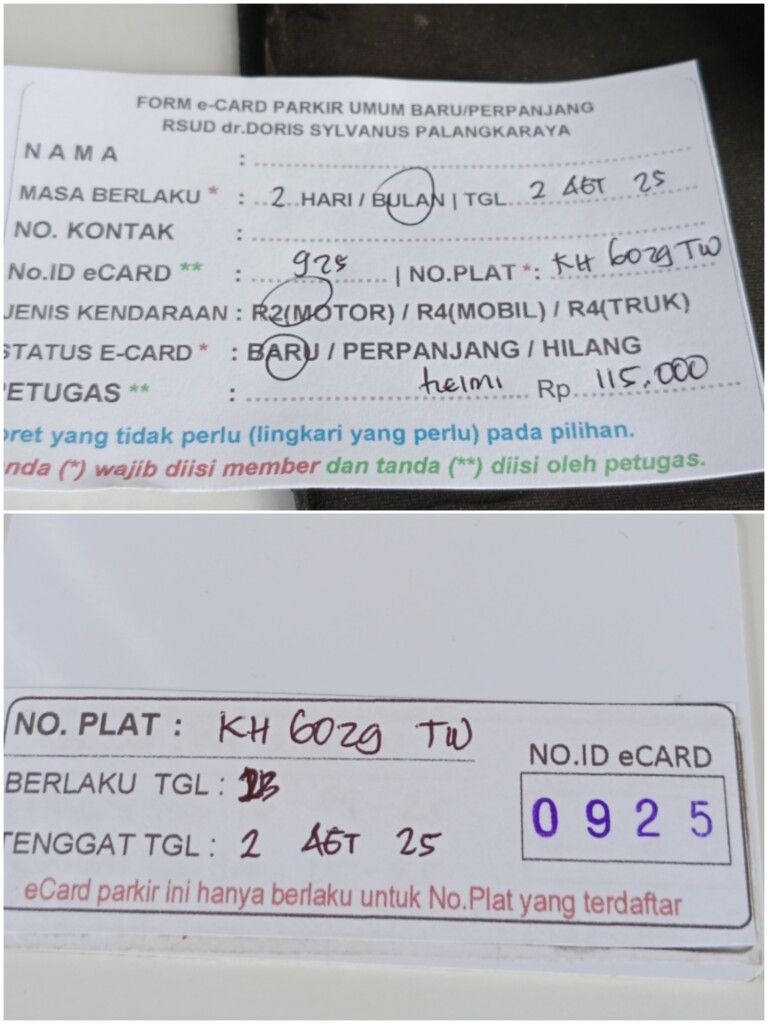 FORM e-CARD PARKIR UMUM BARU/PERPANJANG
RSUD dr.DORIS SYLVANUS PALANGKARAYA
NAMA :
MASA BERLAKU * : 2 HARI / BULAN | TGL 2 AGT 25
NO. KONTAK :
No.ID eCARD ** : 925 | NO.PLAT *: KH 6029 TW
JENIS KENDARAAN : R2(MOTOR) / R4(MOBIL) / R4(TRUK)
STATUS E-CARD * : BARU / PERPANJANG / HILANG
ETUGAS ** : helmi Rp 115.000
oret yang tidak perlu (lingkari yang perlu) pada pilihan.
nda (*) wajib diisi member dan tanda (**) diisi oleh petugas.
NO. PLAT : KH 6029 TW
NO.ID eCARD
0925
BERLAKU TGL :
TENGGAT TGL : 2 AGT 25
eCard parkir ini hanya berlaku untuk No.Plat yang terdaftar